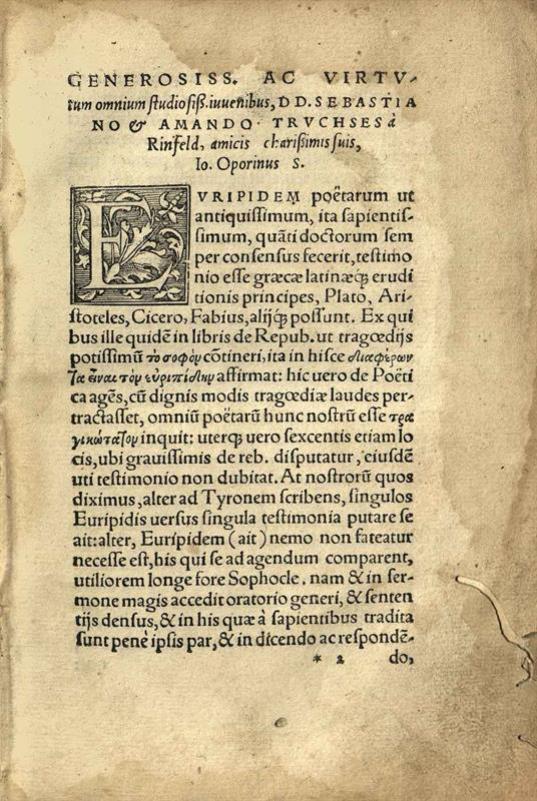 GENEROSISS. AC VIRTV-
tum omnium studiosiß. iuuenibus, D D. SEBASTIA
NO & AMANDO TRVCHSES à
Rinfeld, amicis charißimis suis,
Io. Oporinus S.
EVRIPIDEM poëtarum ut
antiquissimum, ita sapientis-
simum, quāti doctorum sem
per consensus fecerit, testimo
nio esse græcæ latinæq́; erudi
tionis principes, Plato, Ari-
stoteles, Cicero, Fabius, alijq́; possunt. Ex qui
bus ille quidē in libris de Repub. ut tragœdijs
potissimū το σοφὸν cōtineri, ita in hisce διαφέρον
τα εἶναι τὸν ἐυριπίδην affirmat: hic uero de Poëti
ca agēs, cū dignis modis tragœdiæ laudes per-
tractasset, omniū poëtarū hunc nostrū esse τρα
γικώτατον inquit: uterq; uero sexcentis etiam lo
cis, ubi grauissimis de reb. disputatur, eiusdē
uti testimonio non dubitat. At nostrorū quos
diximus, alter ad Tyronem scribens, singulos
Euripidis uersus singula testimonia putare se
ait: alter, Euripidem (ait) nemo non fateatur
necesse est, his qui se ad agendum comparent,
utiliorem longe fore Sophocle. nam & in ser-
mone magis accedit oratorio generi, & senten
tijs densus, & in his quæ à sapientibus tradita
sunt penè ipsis par, & in dicendo ac respondē-
* 2 do,